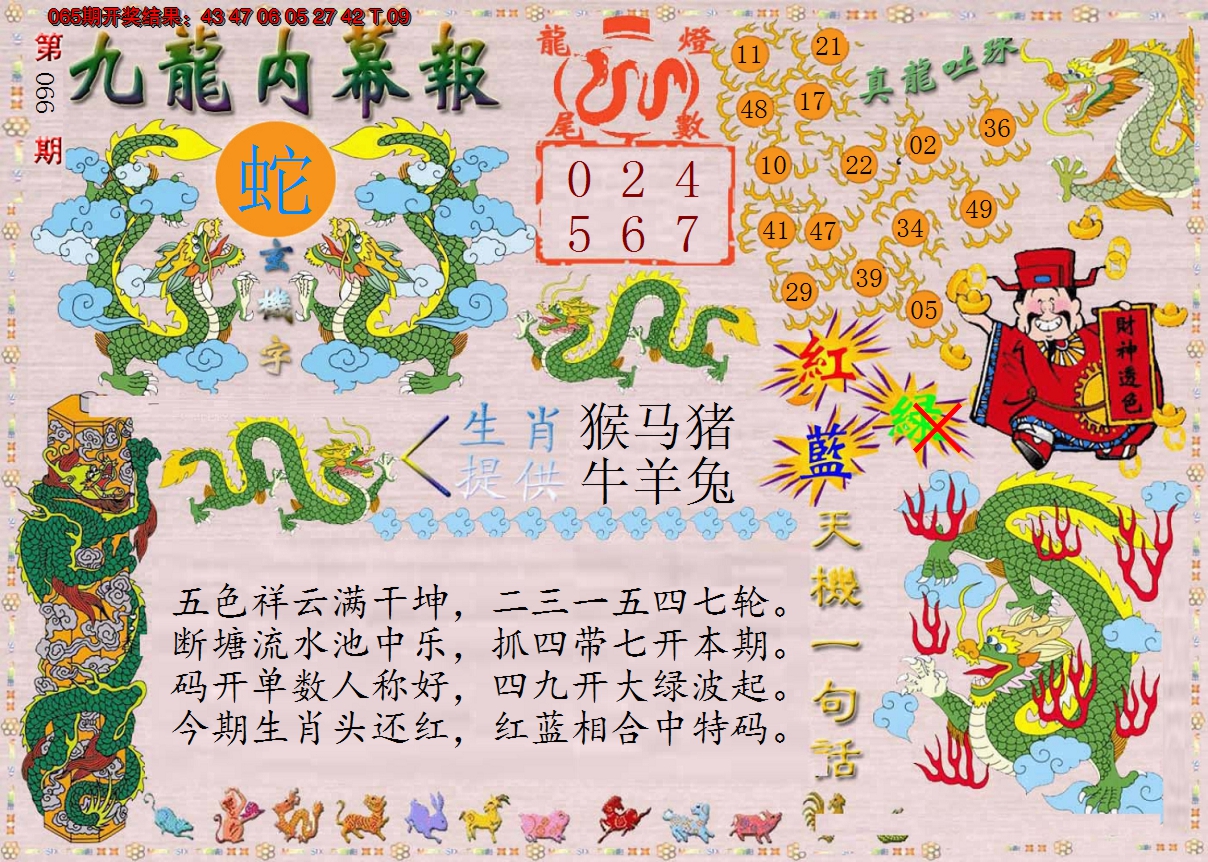 065期开奖结果：43 47 06 05 27 42 T 09
第066期
九龍内幕報
蛇
玄機字
龍燈尾數
0 2 4
5 6 7
真龍吐珠
11 21
48 17
36
02
10 22
49
41 47 34
39
29
05
財神透色
紅
綠
藍
生肖 猴马猪
提供 牛羊兔
天機一句话
五色祥云满干坤，二三一五四七轮。
断塘流水池中乐，抓四带七开本期。
码开单数人称好，四九开大绿波起。
今期生肖头还红，红蓝相合中特码。